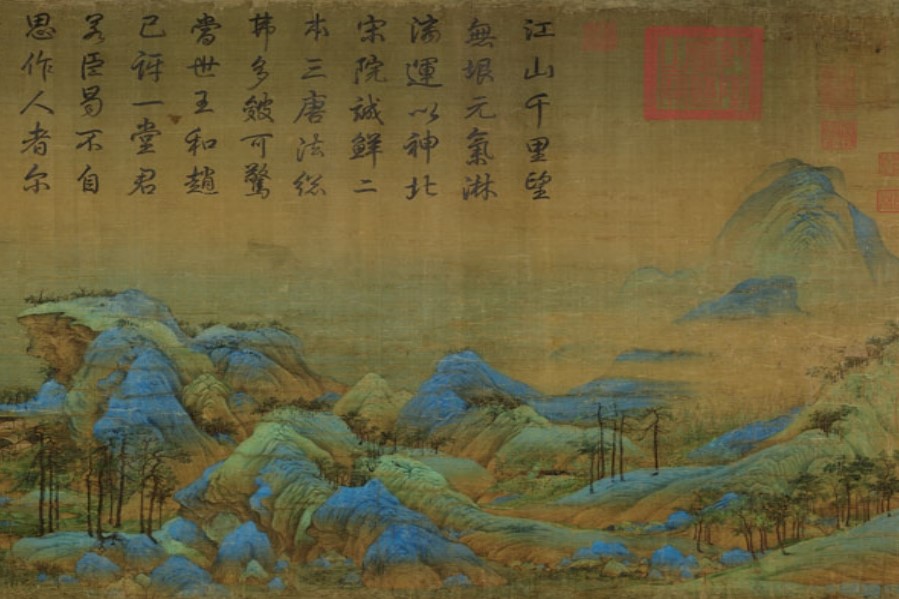 江山千里望
無垠元氣淋
漓運以神北
宋院誠鮮二
本三唐法総
弗多皴可驚
當世王和趙
已訝一堂君
若臣曷不自
思作人者尔